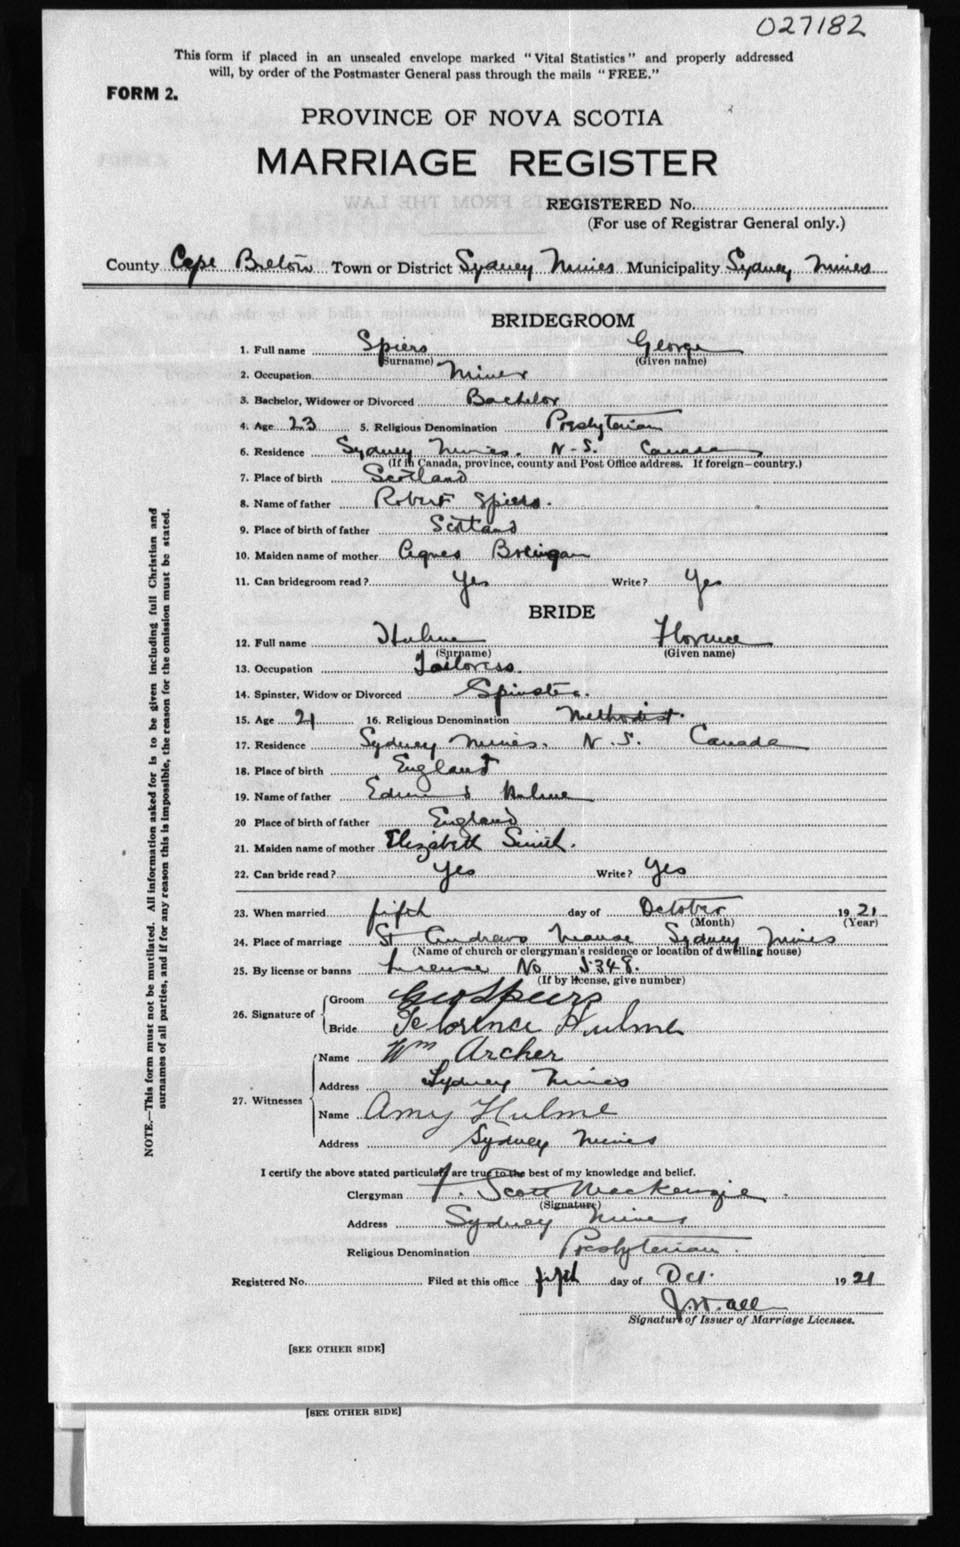 027182
This form if placed in an unsealed envelope marked "Vital Statistics" and properly addressed
will, by order of the Postmaster General pass through the mails "FREE."
FORM 2.
PROVINCE OF NOVA SCOTIA
MARRIAGE REGISTER
REGISTERED No.
(For use of Registrar General only.)
County Cape Breton Town or District Sydney Mines Municipality Sydney Mines
BRIDEGROOM
1. Full name Spiers George
(Surname) (Given name)
2. Occupation Miner
3. Bachelor, Widower or Divorced Bachelor
4. Age 23 5. Religious Denomination Presbyterian
6. Residence Sydney Mines. N.S. Canada
(If in Canada, province, county and Post Office address. If foreign—country.)
7. Place of birth Scotland
8. Name of father Robert Spiers.
9. Place of birth of father Scotland
10. Maiden name of mother Agnes
11. Can bridegroom read? Yes Write? Yes
BRIDE
12. Full name Hulme Florence
(Surname) (Given name)
13. Occupation Tailoress.
14. Spinster, Widow or Divorced Spinster.
15. Age 21 16. Religious Denomination Methodist.
17. Residence Sydney Mines. N.S. Canada
18. Place of birth England
19. Name of father Hulme
20 Place of birth of father England
21. Maiden name of mother Elizabeth Smith.
22. Can bride read? Yes Write? Yes
23. When married fifth day of October 1921
(Month) (Year)
24. Place of marriage St Andrews Manse Sydney Mines
(Name of church or clergyman's residence or location of dwelling house)
25. By license or banns License No 5348.
(If by license, give number)
26. Signature of Groom Geo Speirs
Bride Florence Hulme
27. Witnesses Name Wm Archer
Address Sydney Mines
Name Amy Hulme
Address Sydney Mines
I certify the above stated particulars are true to the best of my knowledge and belief.
Clergyman F. Scott MacKenzie.
(Signature)
Address Sydney Mines
Religious Denomination Presbyterian.
Registered No. Filed at this office fifth day of Oct. 1921
Signature of Issuer of Marriage Licenses.
[SEE OTHER SIDE]
[SEE OTHER SIDE]
NOTE.—This form must not be mutilated. All information asked for is to be given including full Christian and
surnames of all parties, and if for any reason this is impossible, the reason for the omission must be stated.